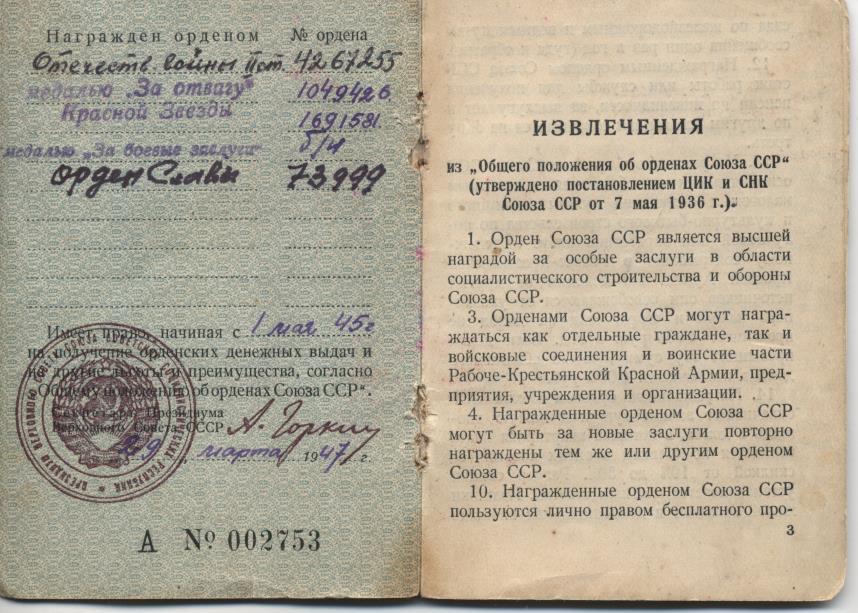 Награжден орденом № ордена
Отечеств. войны II ст. 4267255
медалью „За отвагу" 1049426
Красной Звезды 1691581
медалью „За боевые заслуги" б/н
орден Славы 73999
Имеет право, начиная с 1 мая 45 г
на получение орденских денежных выдач и
на другие льготы и преимущества, согласно
„Общему положению об орденах Союза ССР".
Секретарь Президиума
Верховного Совета СССР А. Горкин
29 „ марта 1947 г.
А № 002753
ИЗВЛЕЧЕНИЯ
из „Общего положения об орденах Союза ССР"
(утверждено постановлением ЦИК и СНК
Союза ССР от 7 мая 1936 г.).
1. Орден Союза ССР является высшей
наградой за особые заслуги в области
социалистического строительства и обороны
Союза ССР.
3. Орденами Союза ССР могут награ-
ждаться как отдельные граждане, так и
войсковые соединения и воинские части
Рабоче-Крестьянской Красной Армии, пред-
приятия, учреждения и организации.
4. Награжденные орденом Союза ССР
могут быть за новые заслуги повторно
награждены тем же или другим орденом
Союза ССР.
10. Награжденные орденом Союза ССР
пользуются лично правом бесплатного про-
3